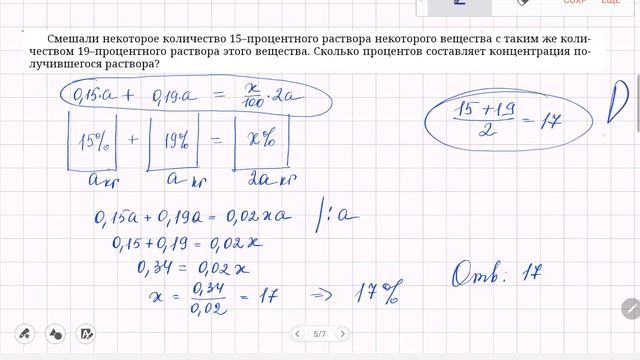 СОХР
ЕЩЕ
Смешали некоторое количество 15–процентного раствора некоторого вещества с таким же коли-
чеством 19–процентного раствора этого вещества. Сколько процентов составляет концентрация по-
лучившегося раствора?
0,15·a + 0,19·a = x/100 · 2a
15% + 19% = x%
a кг a кг 2a кг
(15+19)/2 = 17
0,15a + 0,19a = 0,02xa /:a
0,15 + 0,19 = 0,02x
0,34 = 0,02x
x = 0,34/0,02 = 17 ⇒ 17%
Отв: 17
5/7